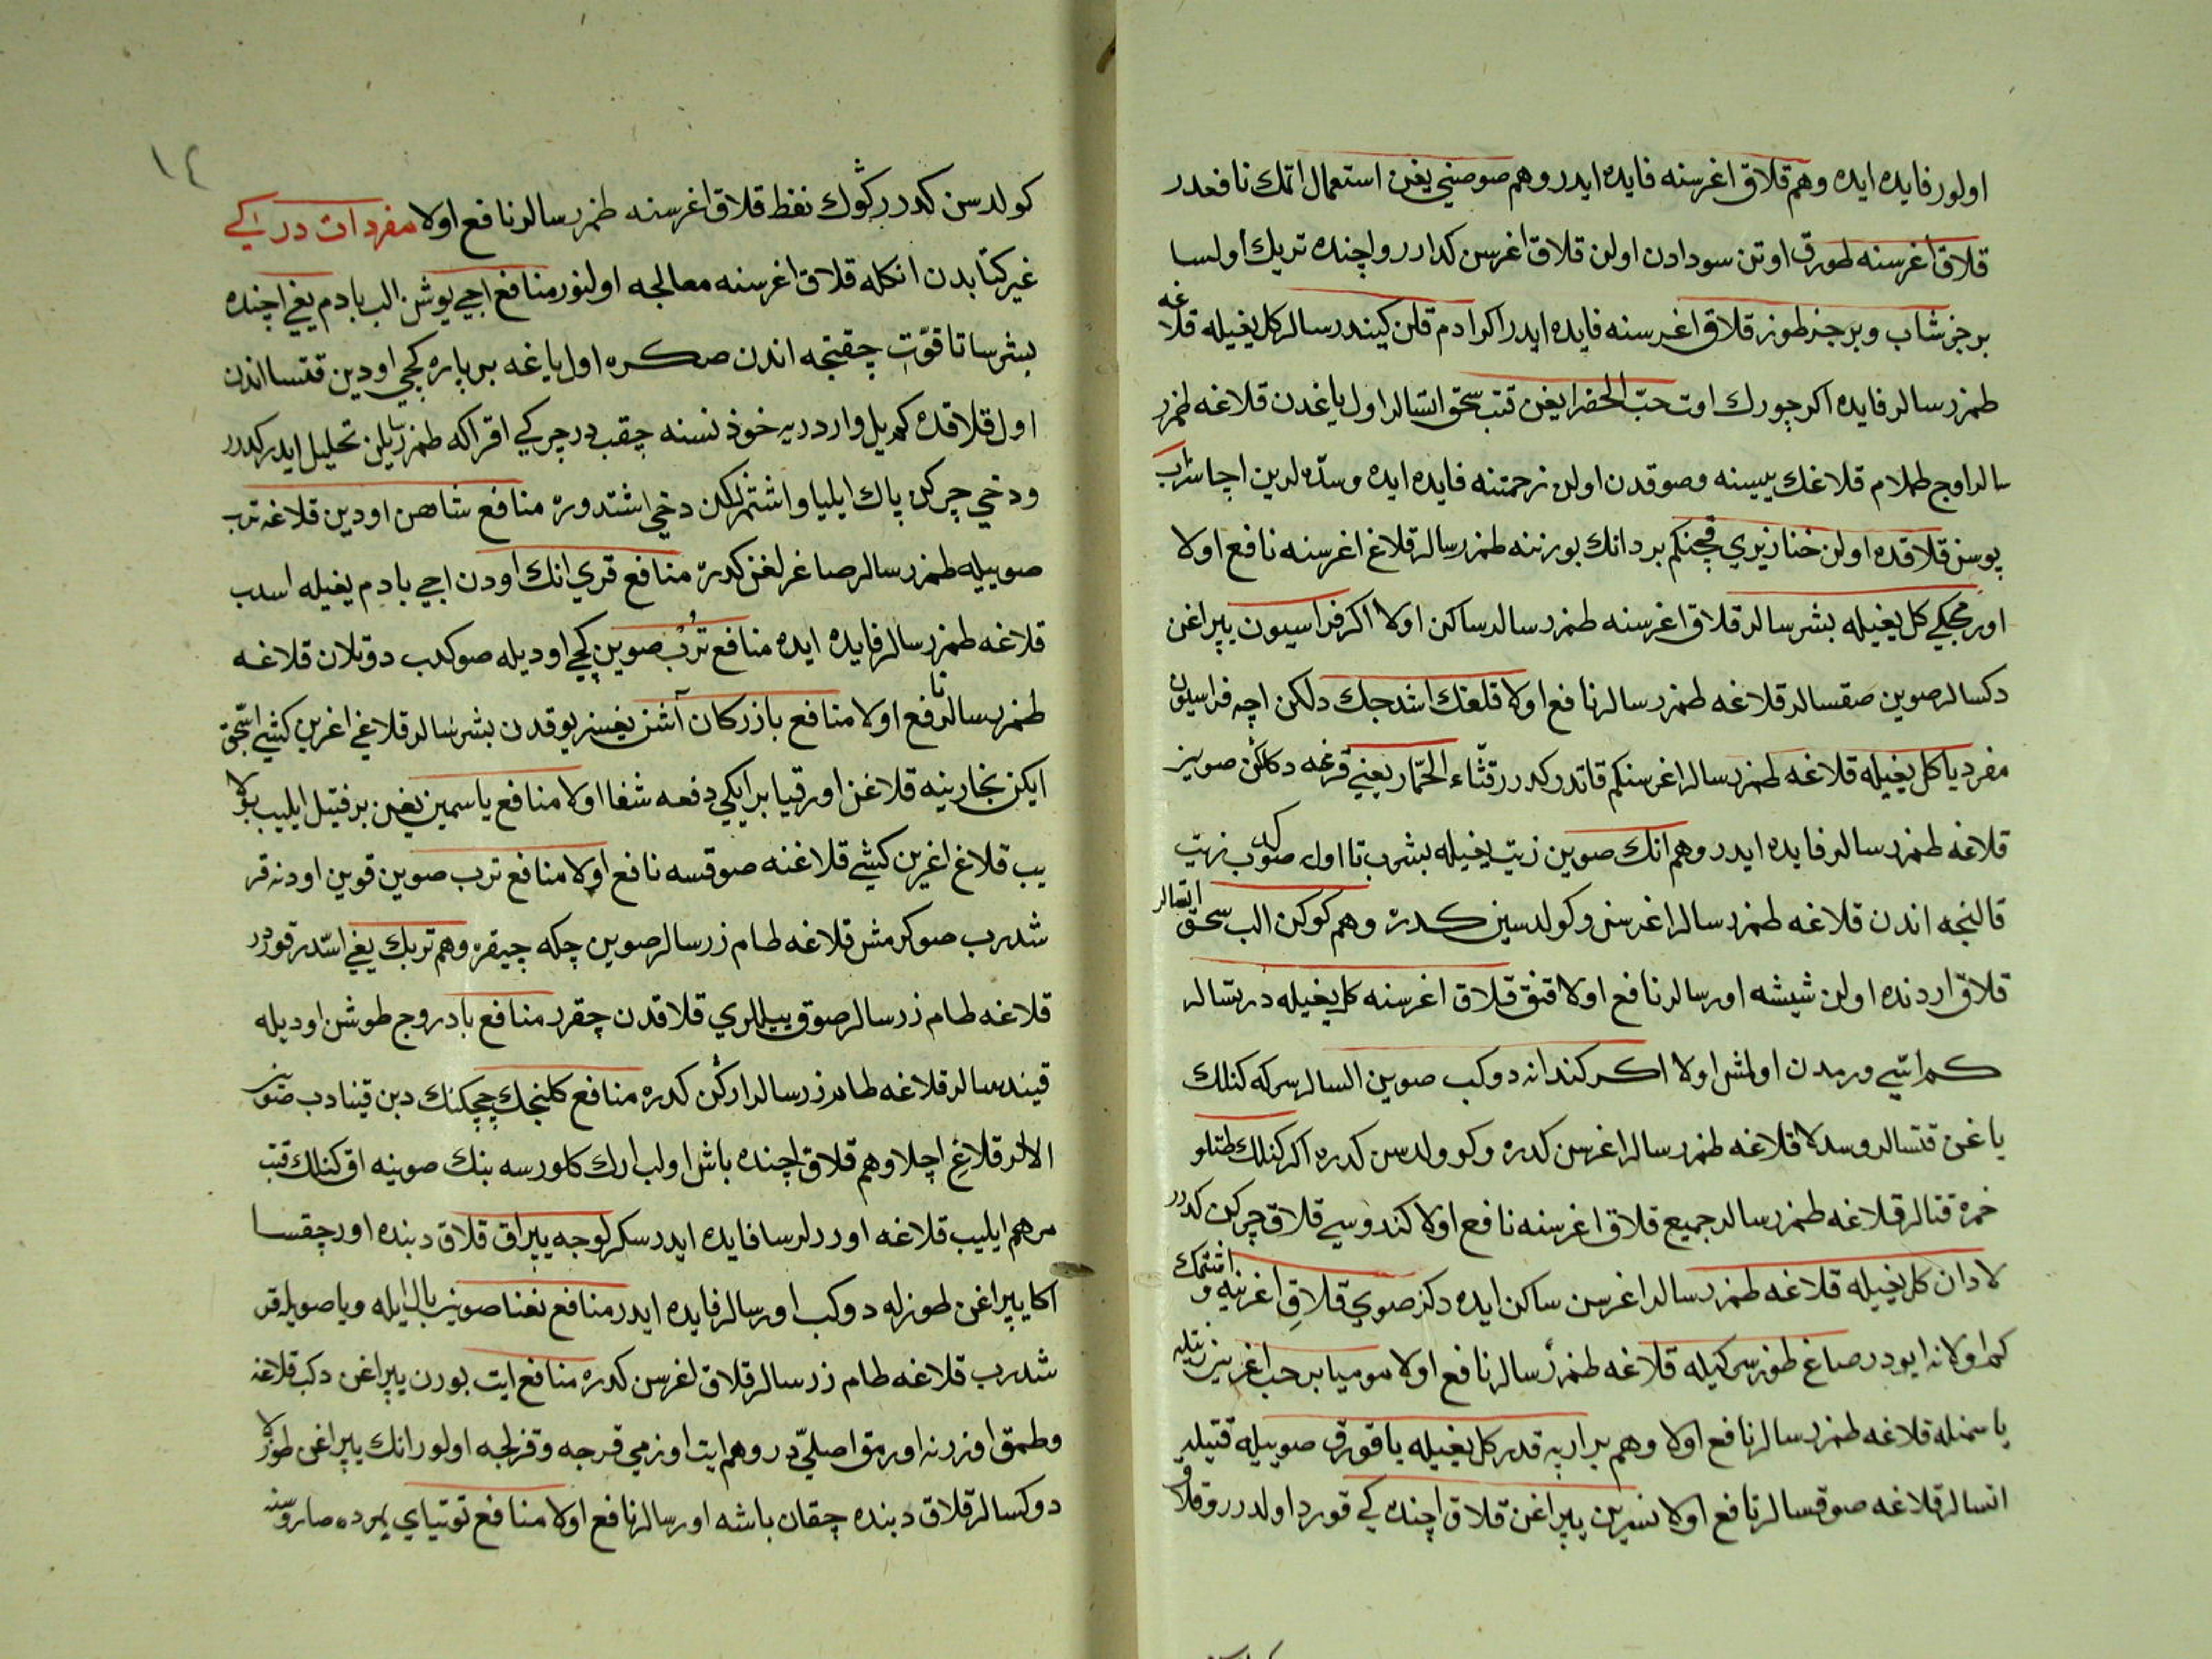 اولور فايده ايده وهم قلاق اغرسنه فايده ايدر وهم صوصني يغن استعمال اتمك نافعدر
قلاق اغرسنه طورق اوتن سودادن اولن قلاق اغرسن كدارر واچنده تريك اولسا
برجز شاب وبرجز طوز قلاق اغرسنه فايده ايدر اكر ادم قلن كيندرسالر كل يغيله قلاغه
طمزرسالر فايده اكر چورك اوت حبّ الخضرا يغن قتب سحق اتسالر اول ياغدن قلاغه طمزر
سالر اوچ طملام قلاغك يبيسنه وصوقدن اولن زحمتنه فايده ايده وسدّه لرين اچا سراب
يوسن قلاقده اولن خنازيري قچنكم بردانك بورننه طمزرسالر قلاغ اغرسنه نافع اولا
اورمجكي كل يغيله بشرسالر قلاق اغرسنه طمزرسالر ساكن اولا اكر فراسيون يپراغن
دكسالر صوين صقسالر قلاغه طمزرسالر نافع اولا قلغك اشدجك دلكن اچه فراسيون
مفرديا كل يغيله قلاغه طمزرسالر اغرسنكم قاتدر كدرر قثّاء الحمّار يعني قرغه دكلكن صوينز
قلاغه طمزرسالر فايده ايدر وهم انك صوين زيت يغيله بشرب تا اول صو كدب زيت
قالنجه اندن قلاغه طمزرسالر اغرسنى وكولدسين كدره وهم كوكن الب سحق اتسالر
قلاق اردنده اولن شيشه اورسالر نافع اولا قنق قلاق اغرسنه كل يغيله درتسالر
كم اتيي ورمدن اولمش اولا اكر كندانه دوكب صوين السالر سركه كنلك
ياغن قتسالر وسدلا قلاغه طمزرسالر اغرسن كدره وكوولدسن كدره اكر كنلك طتلو
خمره قتالر قلاغه طمزرسالر جميع قلاق اغرسنه نافع اولا كندوسي قلاق چركن كدرر
لادان كل يغيله قلاغه طمزرسالر اغرسن ساكن ايده دكز صوي قلاق اغرنيه و اشتمك
كم اولانه ايودر صاغ طوز سركيله قلاغه طمزرسالر نافع اولا موميا بر حب اغرينز زنبقله
ياسمنله قلاغه طمزرسالر نافع اولا وهم برارپه قدر كل يغيله يا قورق صوييله فتيله
اتسالر قلاغه صوقسالر نافع اولا نسرين يپراغن قلاق اچنده كي قورد اولدرر وقلا
١٤
كولدسن كدرر كثوك نفط قلاق اغرسنه طمزرسالر نافع اولا مفردات در اىكي
غير كتابدن انكله قلاق اغرسنه معالجه اولنور منافع اجي يوشن الب بادم يغي اچنده
بشرسا تا قوّت چقنجه اندن صكره اول ياغه بر پاره كچي اودين قتسا اندن
اول قلاقده كم يل واردر يه خوذ نسنه چقب در چركي اقر اكه طمزر يلن تحليل ايدر كدرر
ودخي چركن پاك ايليا واشتمزلكن دخي اشتدوره منافع شاهن اودين قلاغه ترب
صوييله طمزرسالر صاغرلغن كدره منافع قري انك اودن اجي بادم يغيله اسدب
قلاغه طمزرسالر فايده ايده منافع ترب صوين كچي اوديله صوكدب دوتلان قلاغه
طمزرسالر نافع اولا منافع بازركان آشن يغسز بوقدن بشرسالر قلاغي اغرين كيشي اسّجق
ايكن بخارينه قلاغن اورقيا بر ايكي دفعه شفا اولا منافع ياسمين يغين بر فتيل ايليب بولا
يب قلاغ اغرين كيشي قلاغنه صوقسه نافع اولا منافع ترب صوين قوين اودنه قر
شدرب صوكرمش قلاغه طام زرسالر صوين چكه چيقره وهم تربك يغي اسّدر قورر
قلاغه طام زرسالر صوق ييللري قلاقدن چقرر منافع بادروج طوشن اوديله
قيندسالر قلاغه طامزرسالر اركن كدره منافع كلنجك چچكنك دبن قينادب صوين
الالر قلاغ اچلا وهم قلاق اچنده باش اولب ارك كلورسه بنك صوينه اق كنلك قتب
مرهم ايليب قلاغه اوررلرسا فايده ايدر سكرلوجه يپراق قلاق دبنده اور چقسا
اكا يپراغن طوزله دوكب اورسالر فايده ايدر منافع نعنا صوينز بال ايله ويا صويله قر
شدرب قلاغه طام زرسالر قلاق اغرسن كدره منافع ايت بورن يپراغن دكب قلاغه
وطمق اوزرنه اورمق اصليّ در وهم ايت اوزمي قرجه وقزلجه اولور انك يپراغن طوزلا
دوكسالر قلاق دبنده چقان باشه اورسالر نافع اولا منافع توتياي